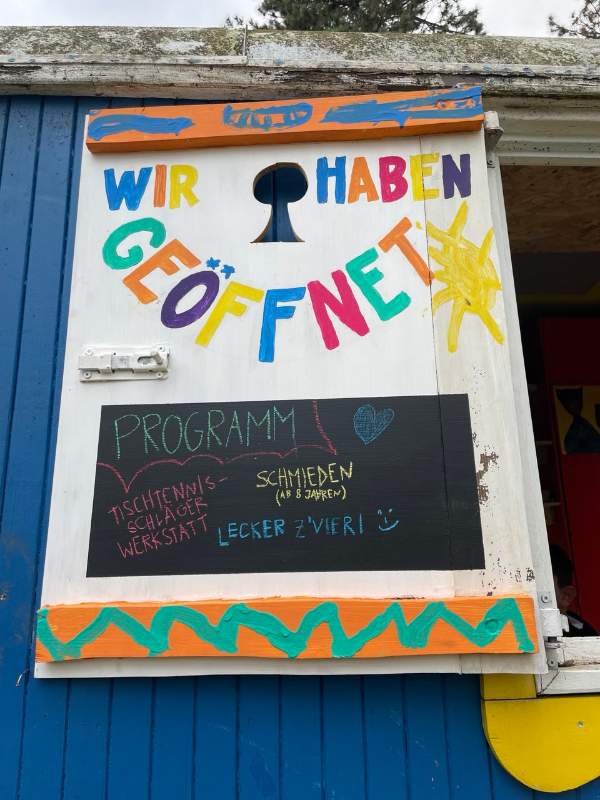 WIR HABEN
GEÖFFNET
PROGRAMM
TISCHTENNIS-
SCHLÄGER
WERKSTATT
SCHMIEDEN
(AB 8 JAHREN)
LECKER Z'VIERI